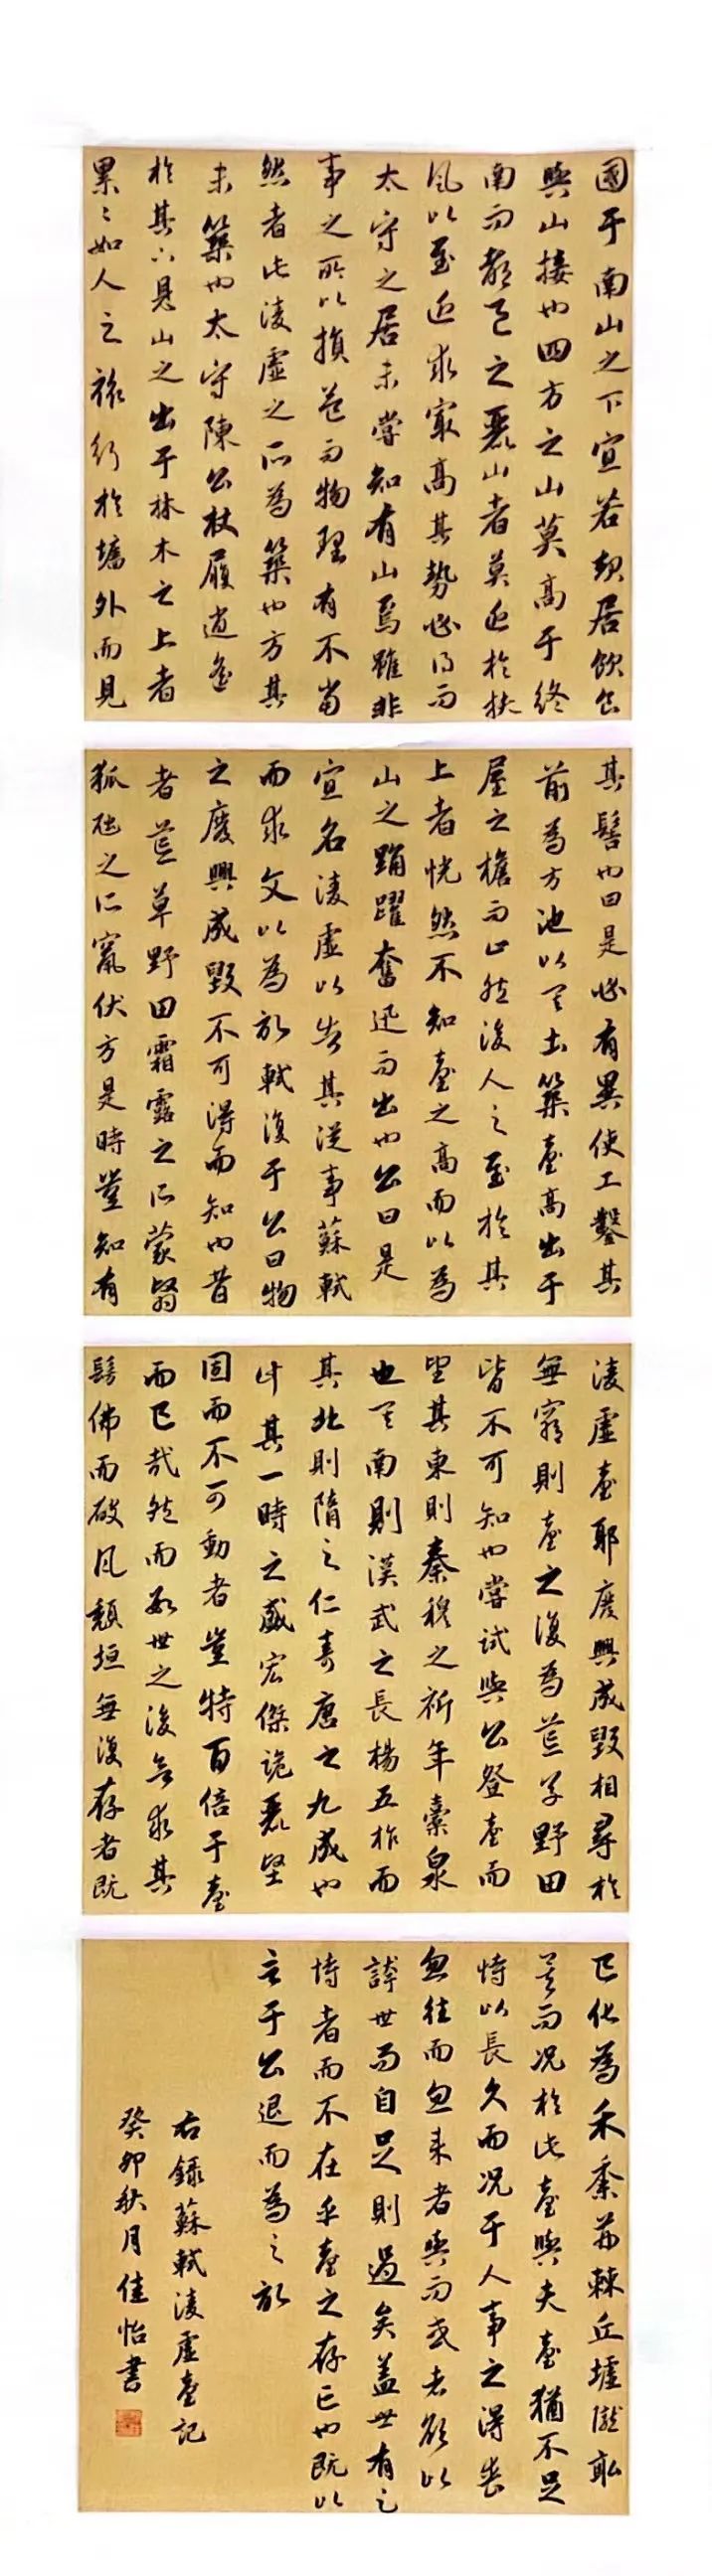 國于南山之下宜若起居飲食
與山接也四方之山莫高于終
南而都邑之麗山者莫近於扶
風以至近求最高其勢必得而
太守之居未嘗知有山焉雖非
事之所以損益而物理有不當
然者此淩虛之所為築也方其
未築也太守陳公杖履逍遙
於其下見山之出于林木之上者
累々如人之旅行於墻外而見
其髻也曰是必有異使工鑿其
前為方池以其土築臺高出于
屋之檐而止然後人之至於其
上者恍然不知臺之高而以為
山之踊躍奮迅而出也公曰是
宜名淩虛以告其從事蘇軾
而求文以為記軾復于公曰物
之廢興成毀不可得而知也昔
者荒草野田霜露之所蒙翳
狐虺之所竄伏方是時豈知有
淩虛臺耶廢興成毀相尋於
無窮則臺之復為荒草野田
皆不可知也嘗試與公登臺而
望其東則秦穆之祈年橐泉
也其南則漢武之長楊五柞而
其北則隋之仁壽唐之九成也
計其一時之盛宏傑詭麗堅
固而不可動者豈特百倍于臺
而已哉然而數世之後欲求其
髣佛而破瓦頹垣無復存者既
已化為禾黍荊棘丘墟隴畝
矣而況於此臺與夫臺猶不足
恃以長久而況于人事之得喪
忽往而忽來者與而或者欲以
誇世而自足則過矣蓋世有足
恃者而不在乎臺之存亡也既以
言于公退而為之記
右錄蘇軾淩虛臺記
癸卯秋月佳怡書